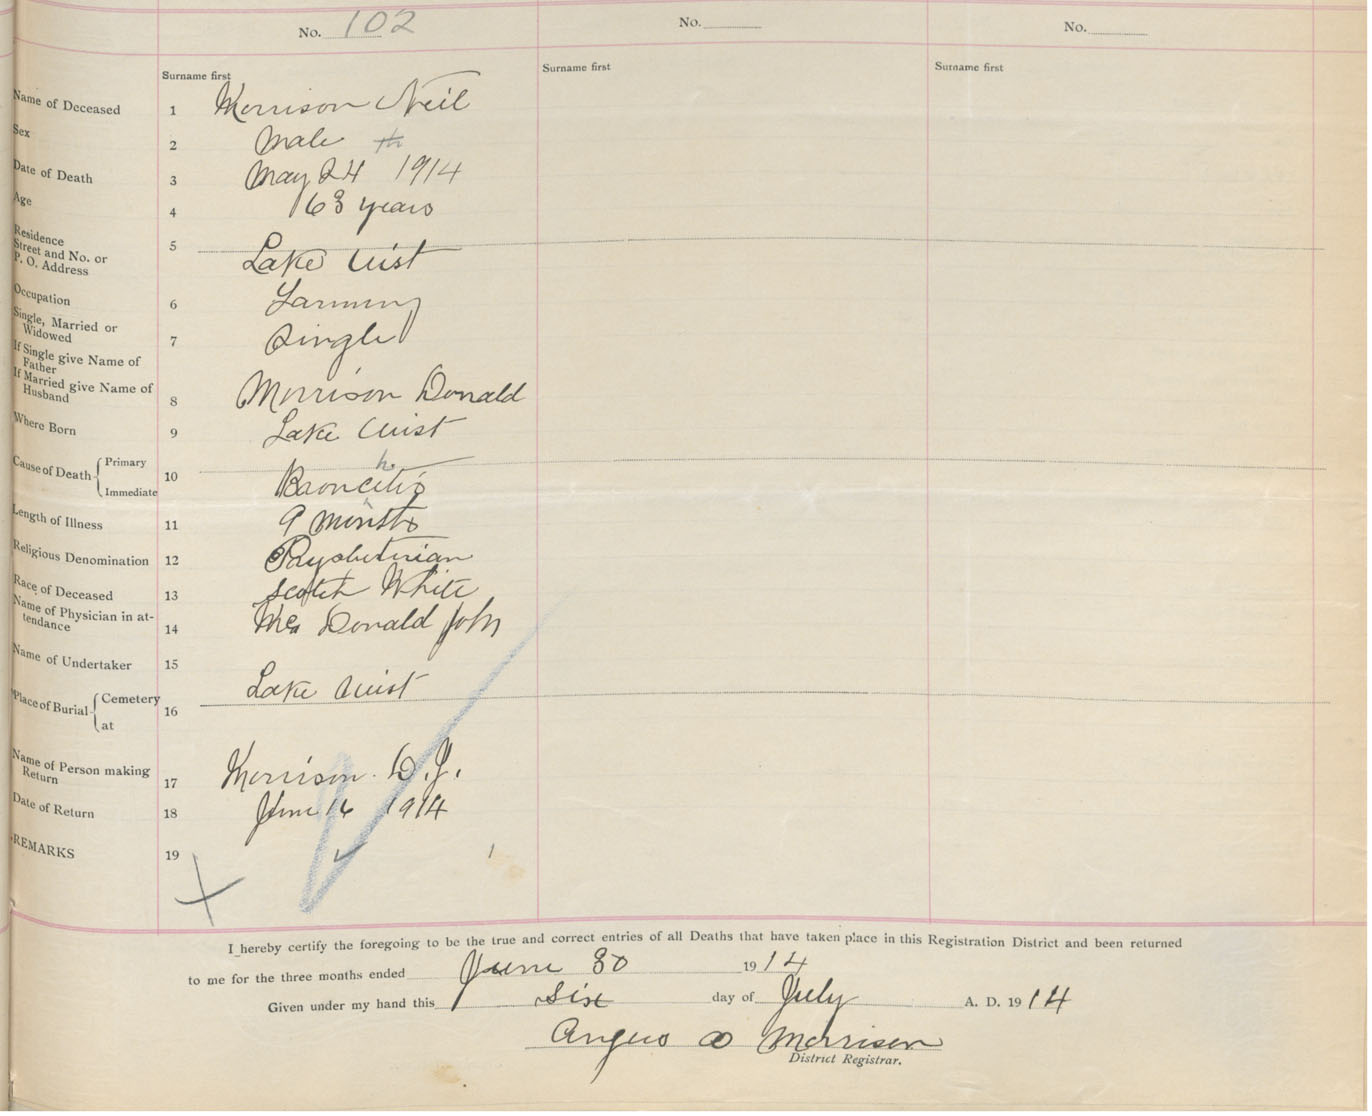 No. 102
No.
No.
Surname first
Surname first
Surname first
Name of Deceased 1 Morrison Neil
Sex 2 Male
Date of Death 3 May 24 1914
Age 4 63 years
Residence
Street and No. or
P. O. Address 5 Lake Uist
Occupation 6 Farming
Single, Married or
Widowed 7 Single
If Single give Name of
Father
If Married give Name of
Husband 8 Morrison Donald
Where Born 9 Lake Uist
Cause of Death { Primary
Immediate 10 Broncitis
h
Length of Illness 11 9 monts
Religious Denomination 12 Prysbeterian
Race of Deceased 13 Scotch White
Name of Physician in at-
tendance 14 Mc Donald John
Name of Undertaker 15
Place of Burial { Cemetery
at 16 Lake Uist
Name of Person making
Return 17 Morrison D. J.
Date of Return 18 June 16 1914
REMARKS 19
I hereby certify the foregoing to be the true and correct entries of all Deaths that have taken place in this Registration District and been returned
to me for the three months ended June 30 1914
Given under my hand this six day of July A. D. 1914
Angus Morrison
District Registrar.